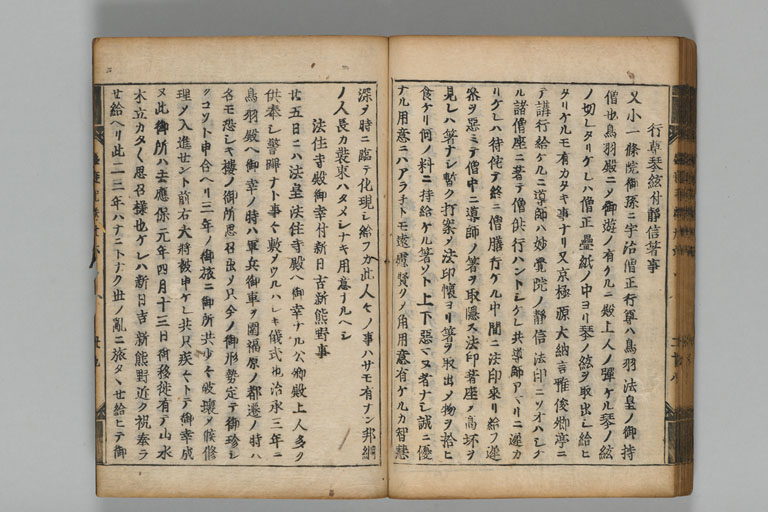 行尊琴絃付静信箸事
又小一條院御孫ニ宇治僧正行尊ハ鳥羽法皇ノ御持
僧也鳥羽殿ニソ御遊ノ有ケルニ殿上人ノ彈ケル琴ノ絃
ノ切レタリケレハ僧正疊紙ノ中ヨリ琴ノ絃ヲ取出シ給ヒ
タリケルモ有カタキ事ナリ又京極源大納言雅俊卿亭ニ
テ講行給ケルニ導師ハ妙覺院ノ静信法印ニソオハシケ
ル諸僧座ニ著テ僧供行ハントシケレ共導師アマリニ遅カ
リケレハ待侘テ終ニ僧膳行ケル中間ニ法印來リ給フ遅
参ヲ惡ミテ僧中ニ導師ノ箸ヲ取隠ス法印著座ノ高坏ヲ
見レハ箸ナシ暫ク打案メ法印懐ヨリ箸ヲ取出メ物ヲ拾ヒ
食ケリ何ノ料ニ持給ケル箸ソト上下惡マヌ者ナシ誠ニ優
ナル用意ニハアラネトモ遠慮賢ク角用意有ケルカ智慧
深ヲ時ニ臨テ化現シ給フカ此人々ノ事ハサモ有ナン邦綱
ノ人長カ裝束ハタメシナキ用意ナルヘシ
法住寺殿御幸付新日吉新熊野事
廿五日ニハ法皇法住寺殿ヘ御幸ナル公卿殿上人多ク
供奉シ警蹕ナト事々數ソウルハシキ儀式也治承三年ニ
鳥羽殿ヘ御幸ノ時ハ軍兵御車ヲ圍福原ノ都遷ノ時ハ
名モ恐シキ樓ノ御所思召出ソ只今ノ御形勢定テ御珍シ
クコソト申合ヘリ三年ノ御旅ニ御所共少々破壞ノ候修
理ノ入進セント前右大將被申ケレ共只疾々トテ御幸成
ヌ此御所ハ去應保元年四月十三日御移徙有テ山水
木立カタ〱思召樣也ケレハ新日吉新熊野近ク祝奉ラ
セ給ヘリ此二三年ハナニトナク世ノ亂ニ旅タヽセ給ヒテ御